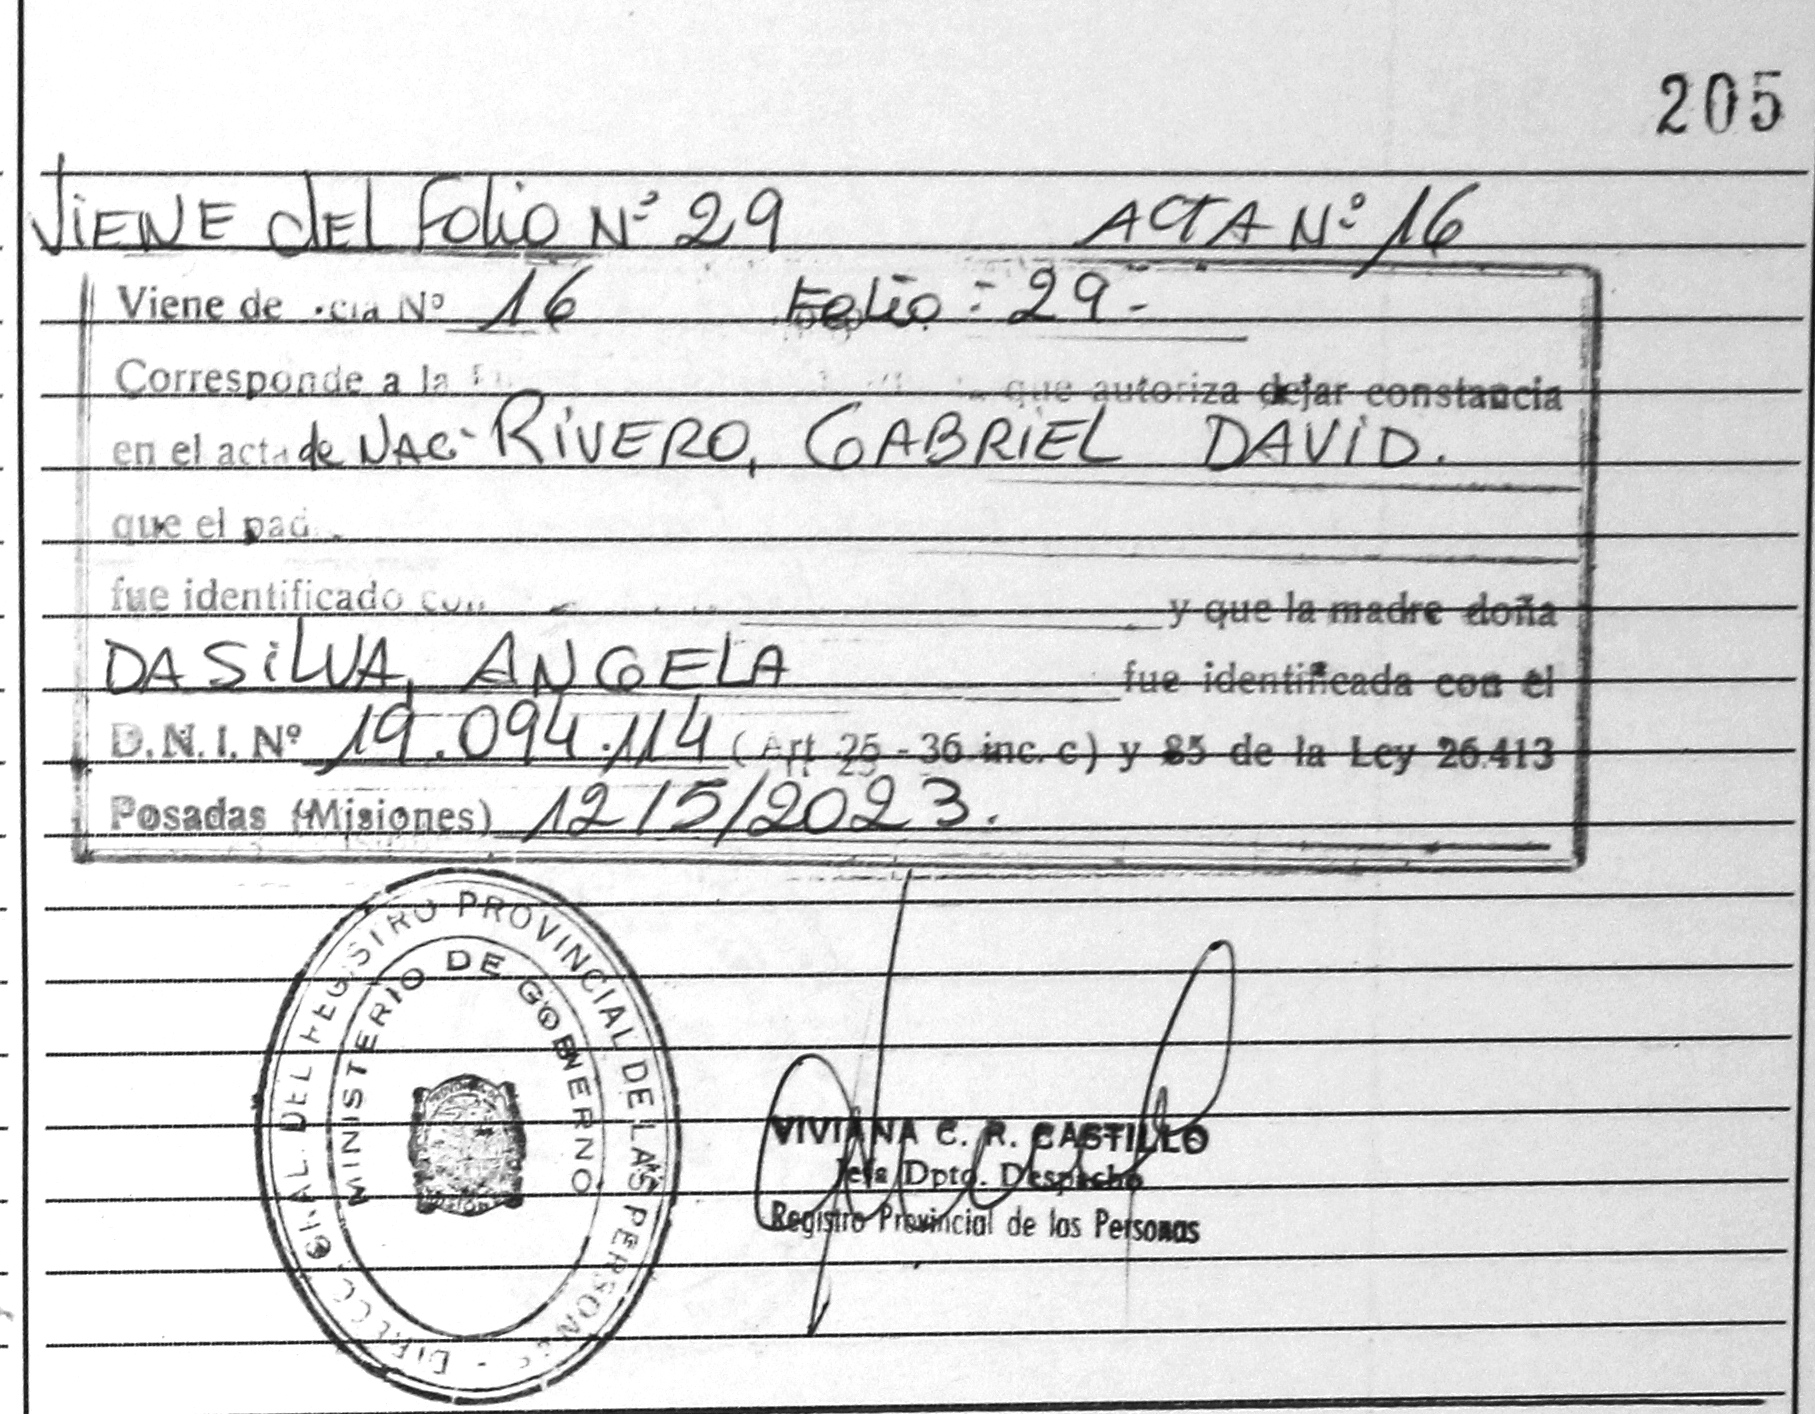 205
VIENE dEL Folio Nº 29 ACTA Nº 16
Viene de Nº 16 Folio: 29-
Corresponde a la que autoriza dejar constancia
en el acta de NAC- RiVERO, GABRIEL DAViD.
que el
fue identificado y que la madre doña
DA SiLVA, ANGELA fue identificada con el
D.N.I. Nº 19.094.114 (Art 25 - 36 inc. c) y 85 de la Ley 26.413
Posadas (Misiones) 12/5/2023.
DIRECC GRAL. DEL REGISTRO PROVINCIAL DE LAS PERSONAS
MINISTERIO DE GOBIERNO
VIVIANA C. R. CASTILLO
Jefa Dpto. Despacho
Registro Provincial de las Personas